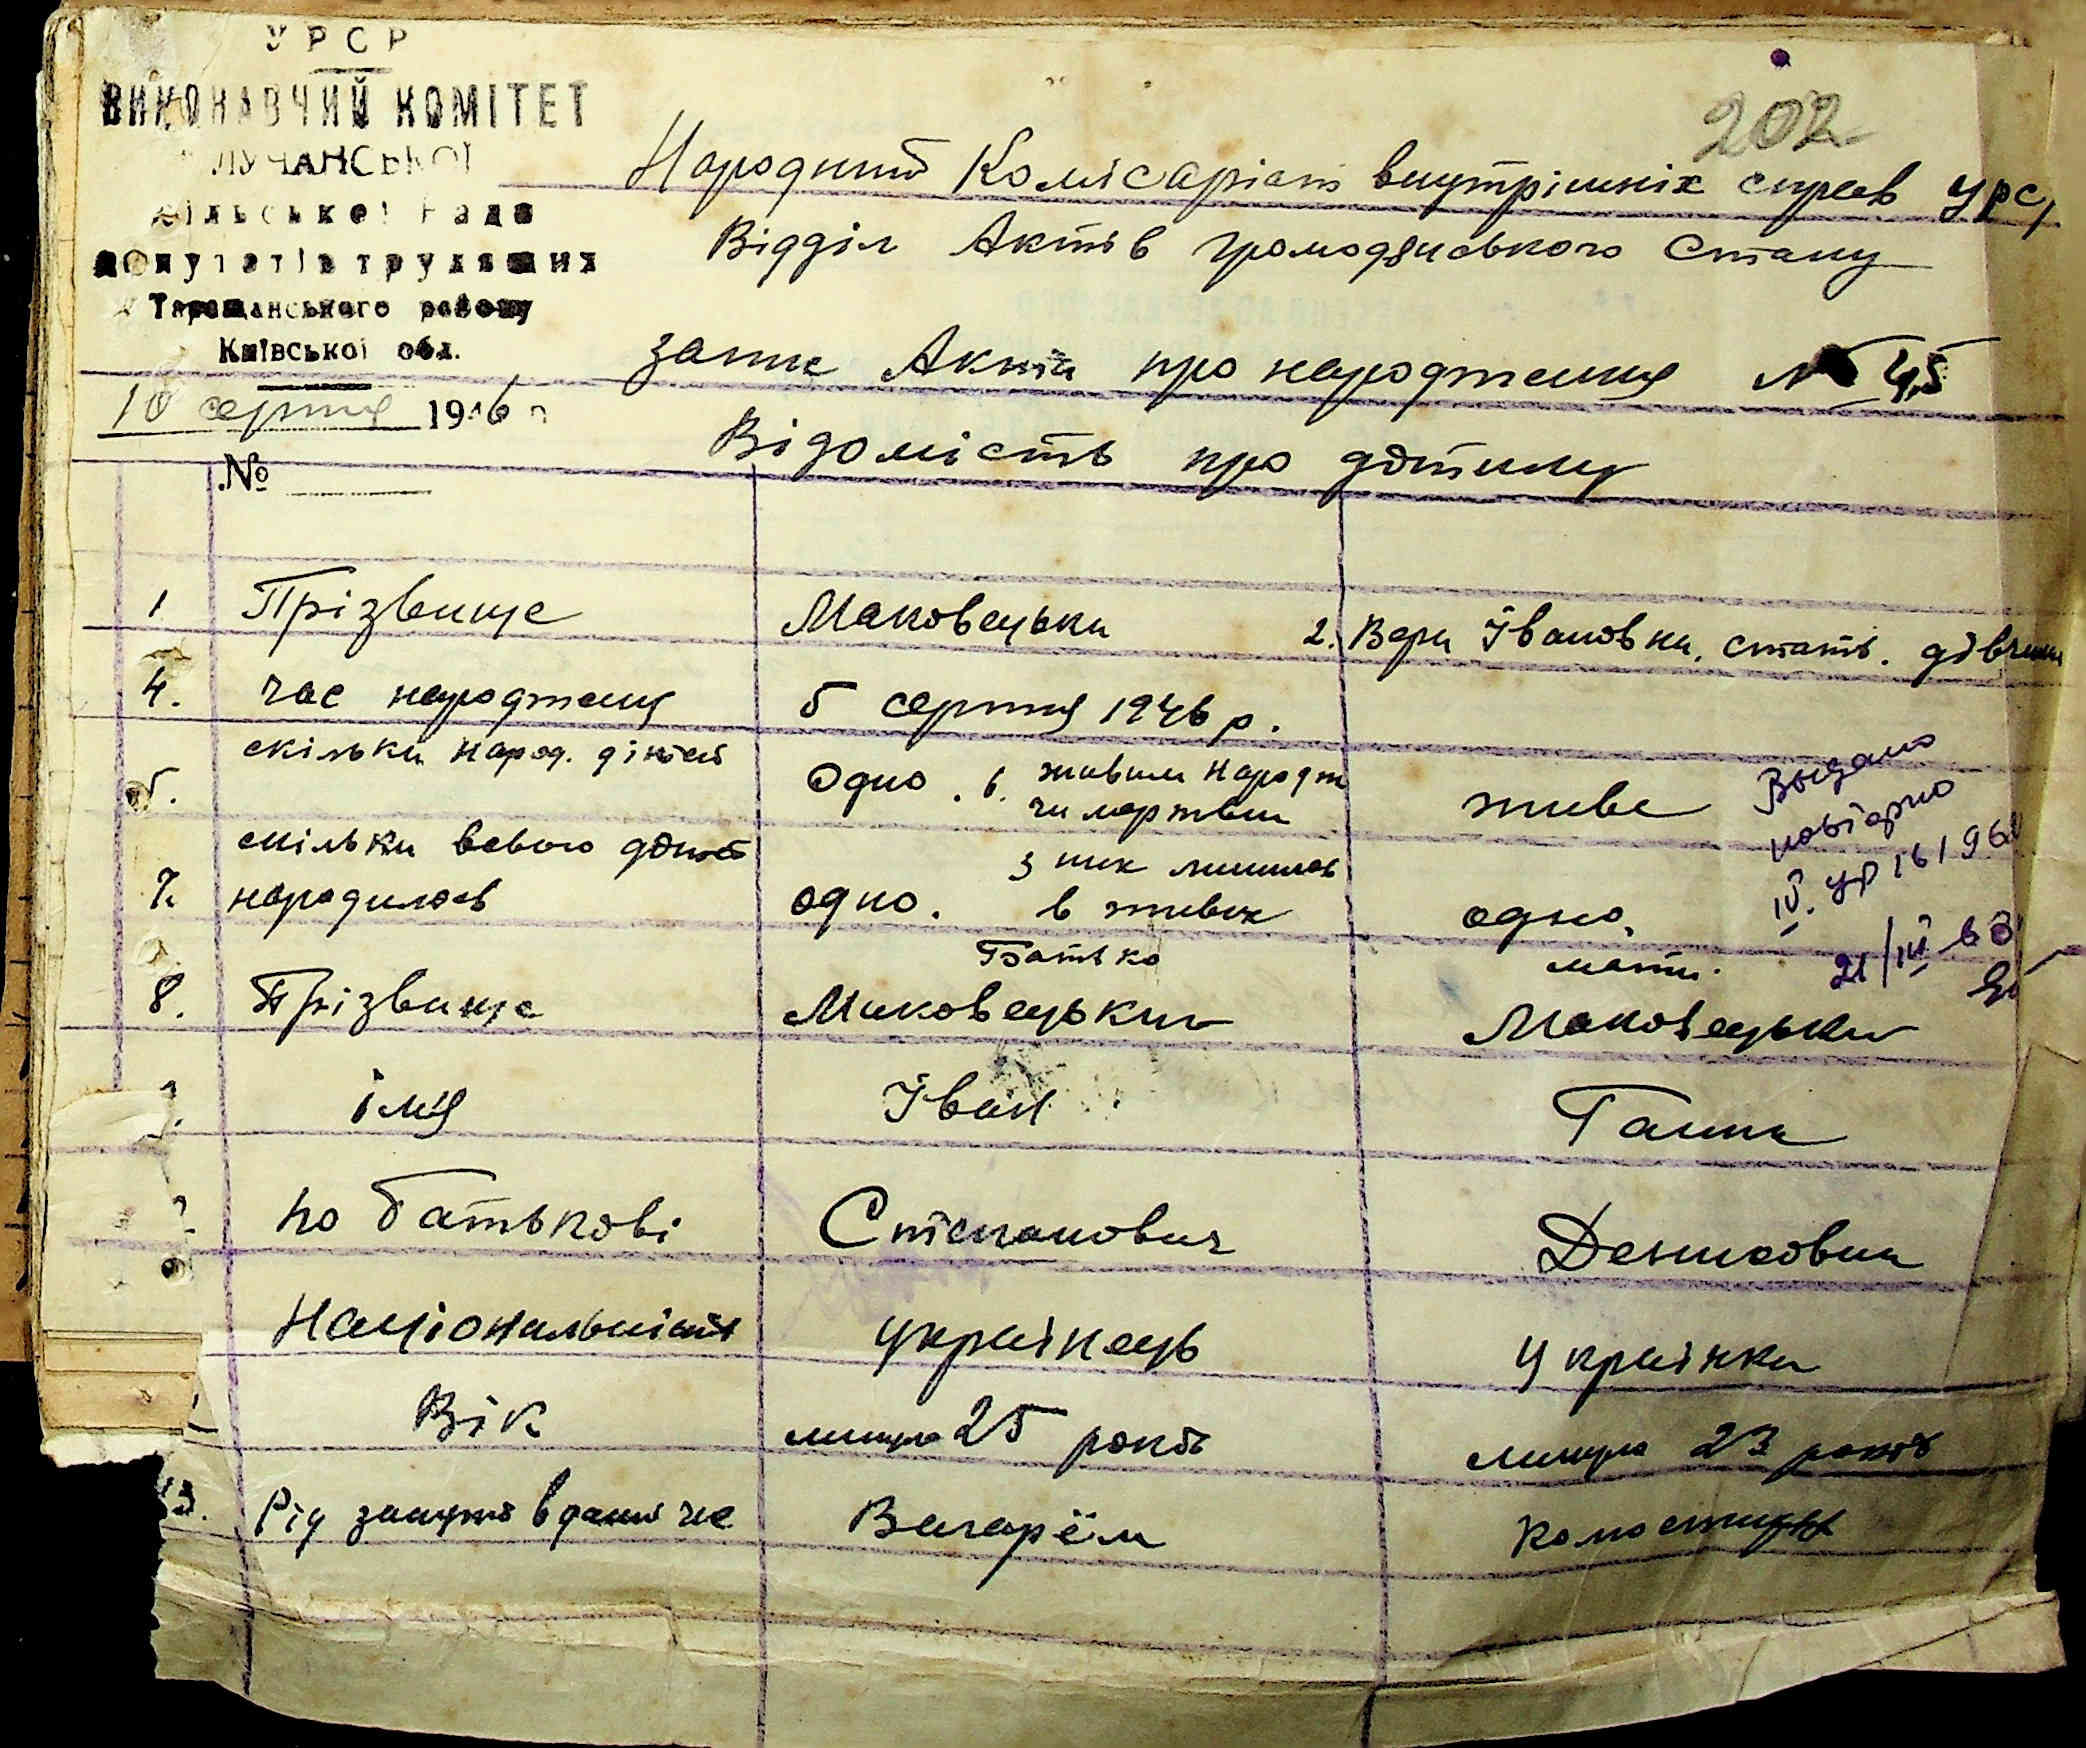 УРСР
ВИКОНАВЧИЙ КОМІТЕТ
ЛУЧАНСЬКОЇ
Сільської Ради
депутатів трудящих
Таращанського району
Київської обл.
10 серпня 1946 р
№
202
Народний Комісаріат внутрішніх справ УРС
Відділ Актів громадянського Стану
запис Акта про народження № 45
Відомість про дітину
1 Прізвище Маковецька 2. Вера Івановна. стать. дівчина
4. час народженя 5 серпня 1946 р.
5. скільки народ. дітей Одно. 6. живим народж чи мертвим живе
7. скільки всього дітей народилось одно. з них лишилось в живих одно.
Выдано
повторно
IV. УР 16196
21/III
Батько мати.
8. Прізвище Маковецький Маковецька
імя Іван Ганна
по батькові Степанович Денисовна
Національність українець українка
Вік минуло 25 років минуло 23 років
13. Рід занять в даний час